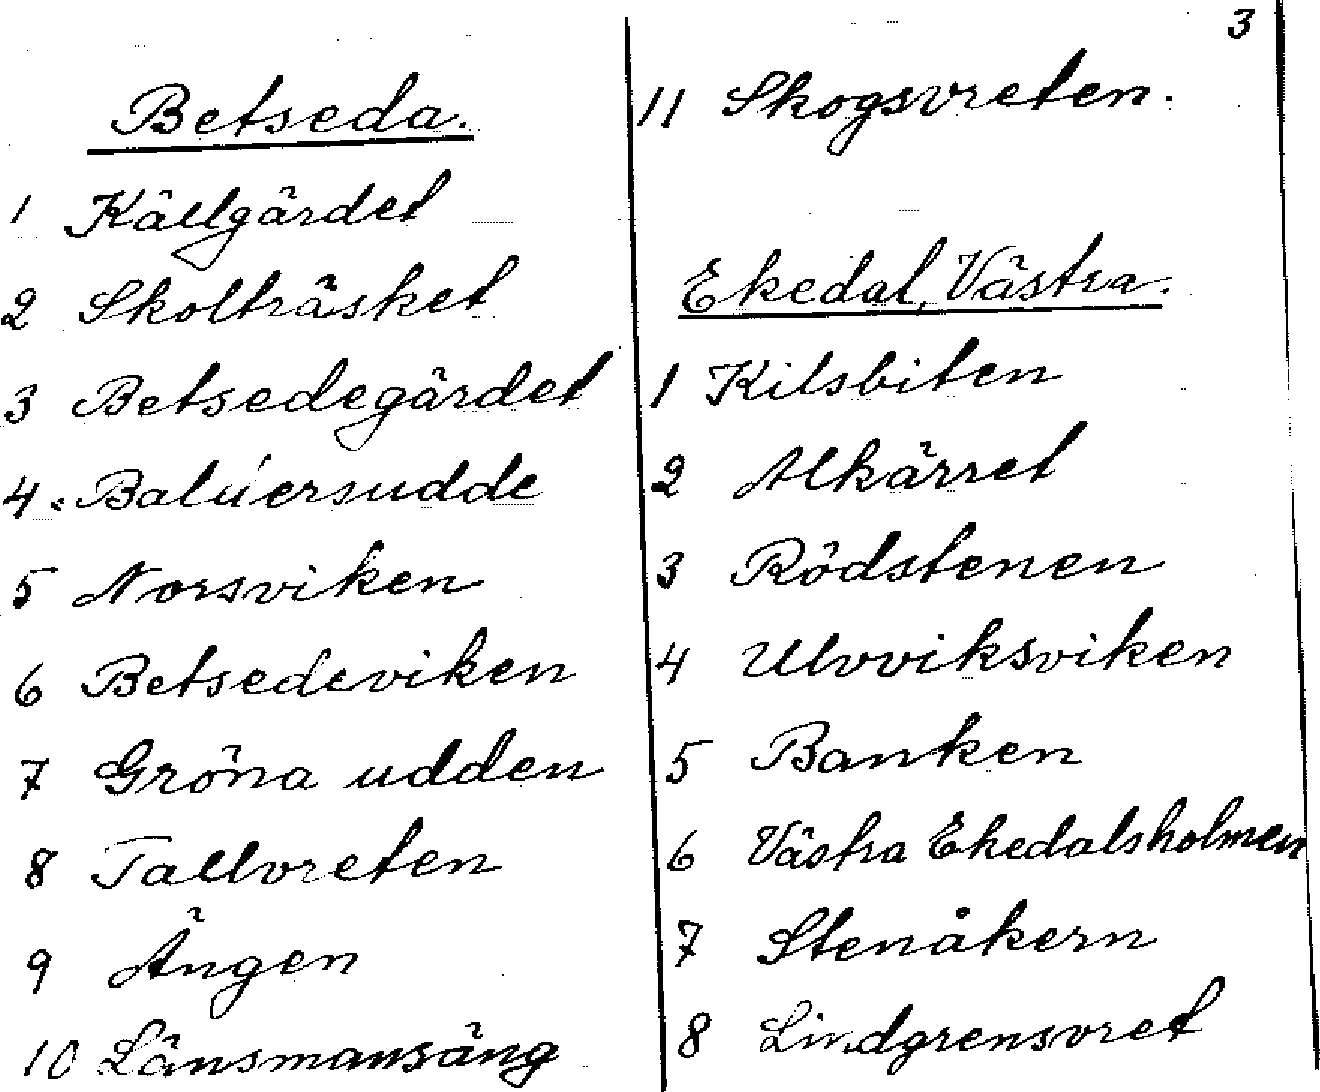 3
Betseda.
1 Källgärdet
2 Skolträsket
3 Betsedegärdet
4 Balúersudde
5 Norsviken
6 Betsedeviken
7 Gröna udden
8 Tallvreten
9 Ängen
10 Länsmansäng
11 Skogsvreten.
Ekedal, Västra.
1 Kilsbiten
2 Alkärret
3 Rödstenen
4 Ulvviksviken
5 Banken
6 Västra Ekedalsholmen
7 Stenåkern
8 Lindgrensvret